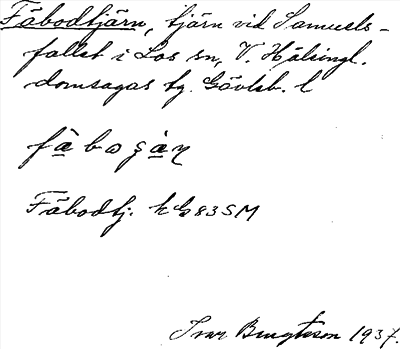 Fäbodtjärn, tjärn vid Samuels-
fallet i Los sn, V. Hälsingl.
domsagas tg. Gävleb. l
Fäbodtj. hG83SM
Ivar Bengtsson 1937.